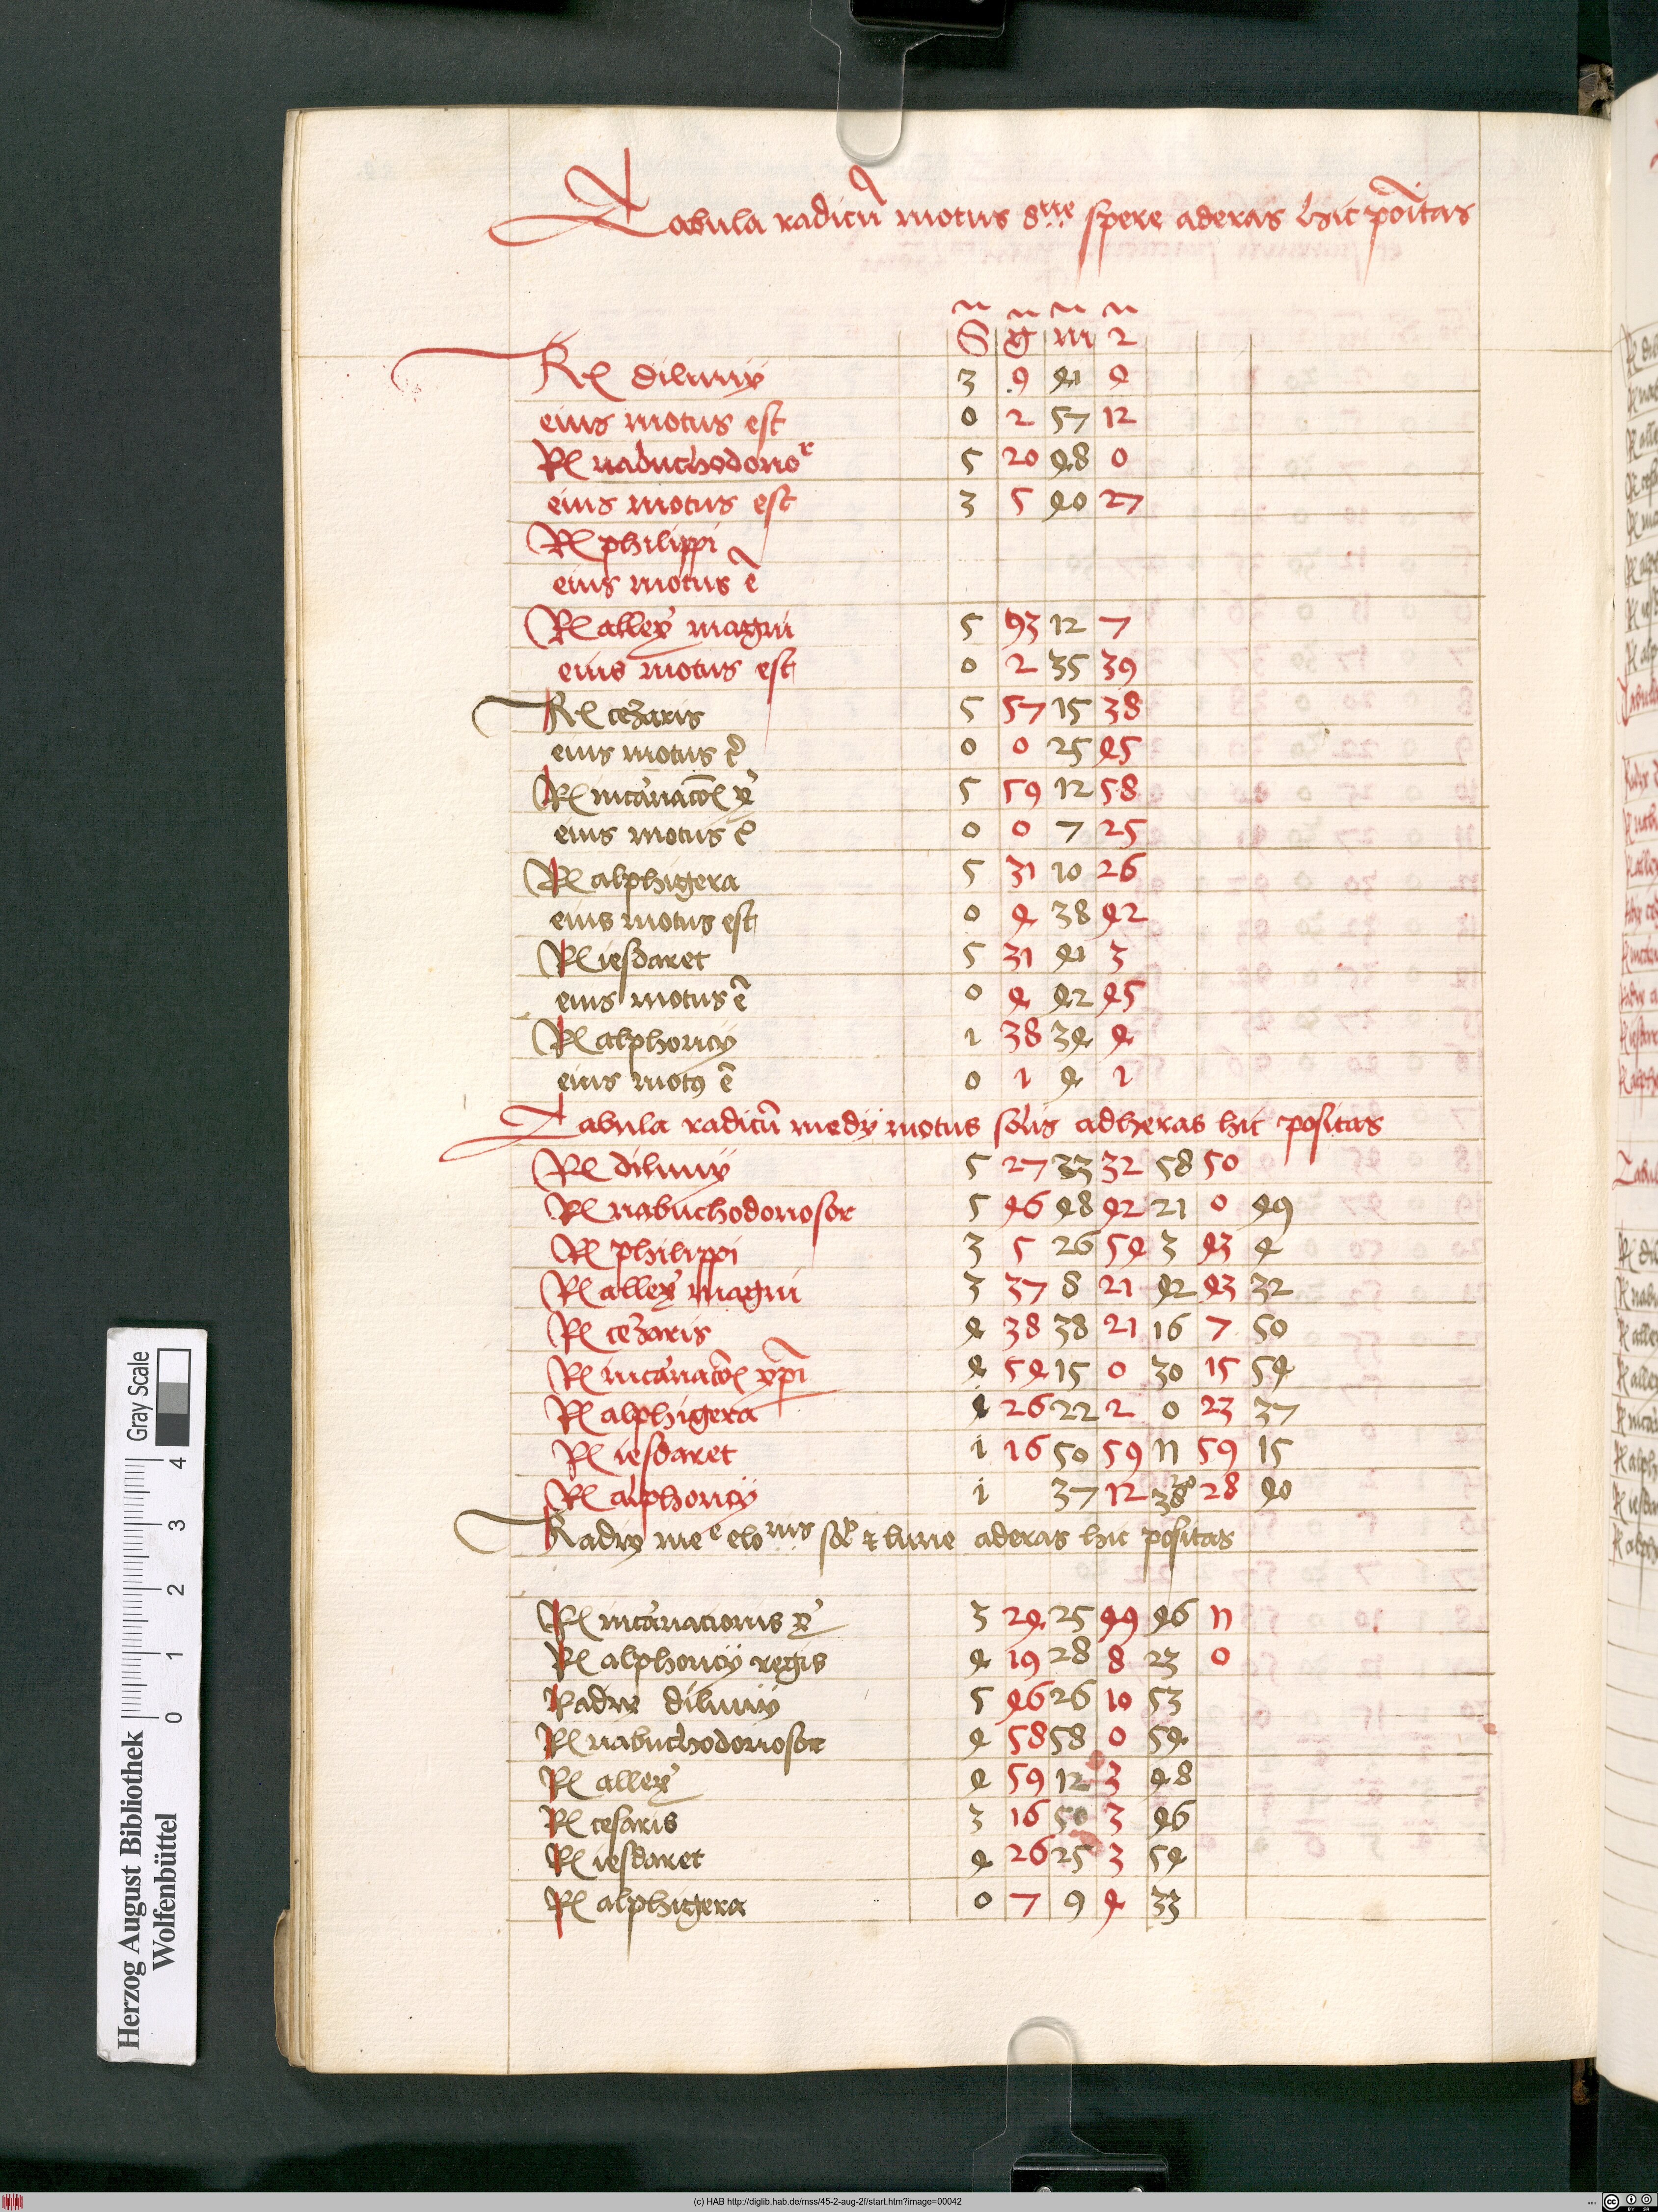 Tabula radicū motus 8ue spere aderas hic poītas
S g m 2
Rx diluuij 3 9 41 4
eius motus est 0 2 57 12
Rx nabuchodonor 5 20 48 0
eius motus est 3 5 40 27
Rx philippi
eius motus ē
Rx allexº magni 5 93 12 7
eius motus est 0 2 35 39
Rx cezaris 5 57 15 38
eius motus ē 0 0 25 45
Rx incarnacōx xº 5 59 12 58
eius motus ē 0 0 7 25
Rx alphigera 5 31 10 26
eius motus est 0 4 38 42
Rx iesdaret 5 31 41 3
eius motus ē 0 4 42 45
Rx alphoncij 1 38 34 4
eius motꝯ ē 0 1 4 1
Tabula radicū medij motus solis adheras hic positas
Rx diluuij 5 27 33 32 58 50
Rx nabuchodonosor 5 46 48 42 21 0 49
Rx philippi 3 5 26 54 3 43 4
Rx allexº magni 3 37 8 21 42 43 32
Rx cezaris 4 38 38 21 16 7 50
Rx incarnacōx xp̄i 4 54 15 0 30 15 54
Rx alphigera 4 26 22 2 0 23 37
Rx iesdaret i 16 50 59 11 59 15
Rx alphoncij i 37 12 38 28 40
Radix me e elo nis sol̄ & lune aderas hic positas
Rx incarnacionis xº 3 24 25 49 46 11
Rx alphoncij regis 4 19 28 8 23 0
Radix diluuij 5 46 26 10 53
Rx nabuchodonosor 4 58 58 0 54
Rx allexº 4 59 12 3 48
Rx cesaris 3 16 50 3 46
Rx iesdaret 4 26 25 3 54
Rx alphigera 0 7 9 4 33
Herzog August Bibliothek
Wolfenbüttel
0 1 2 3 4
Gray Scale
(c) HAB http://diglib.hab.de/mss/45-2-aug-2f/start.htm?image=00042